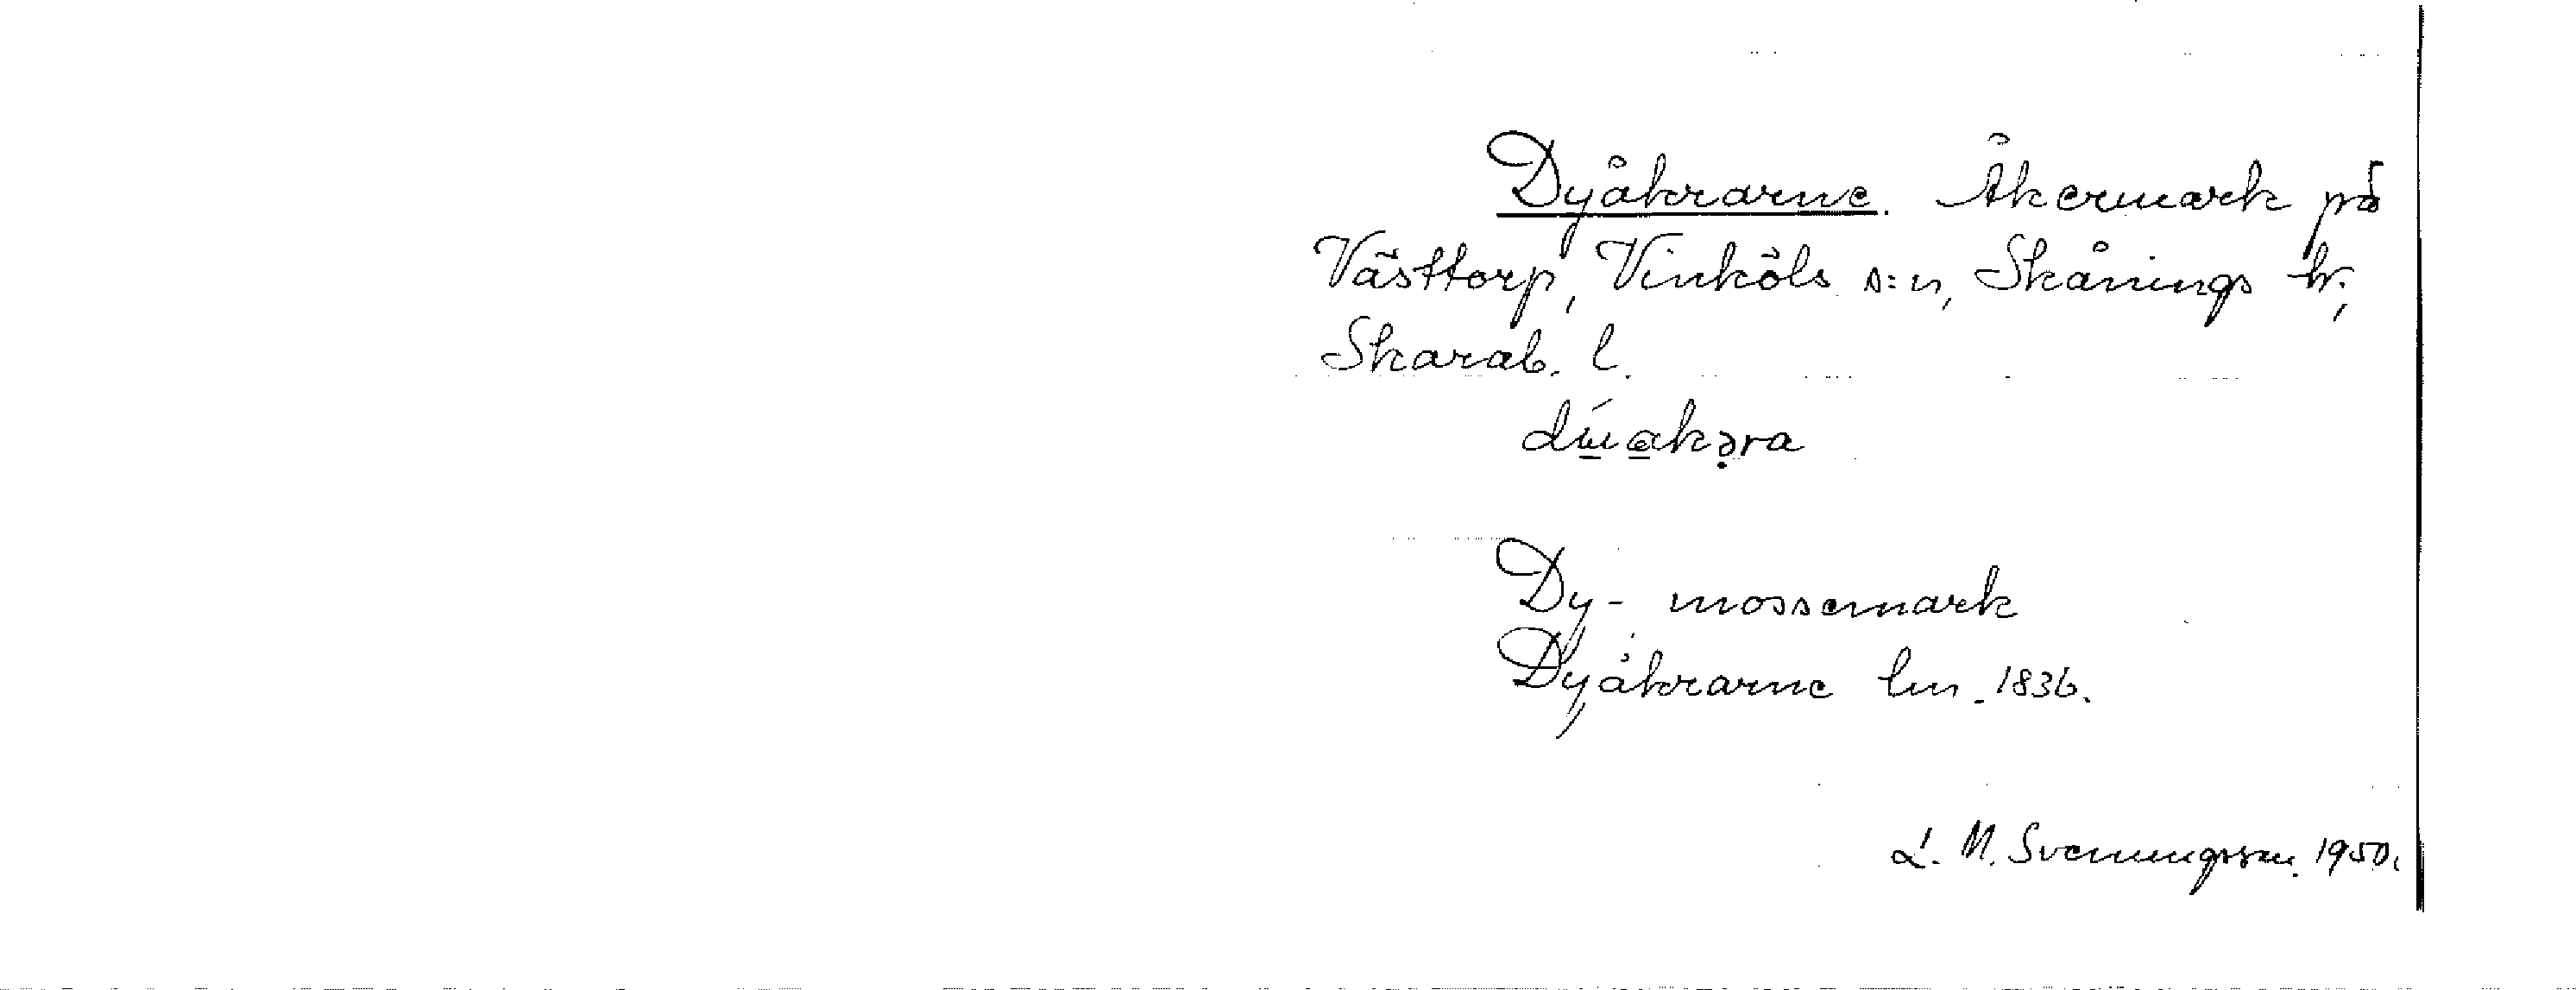 Dyåkrarne. Åkermark på
Västtorp, Vinköls s:n, Skånings hr,
Skarab. l.
Dy- mossemark
Dyåkrarne lm. 1836.
L. M. Svenungsson. 1950.